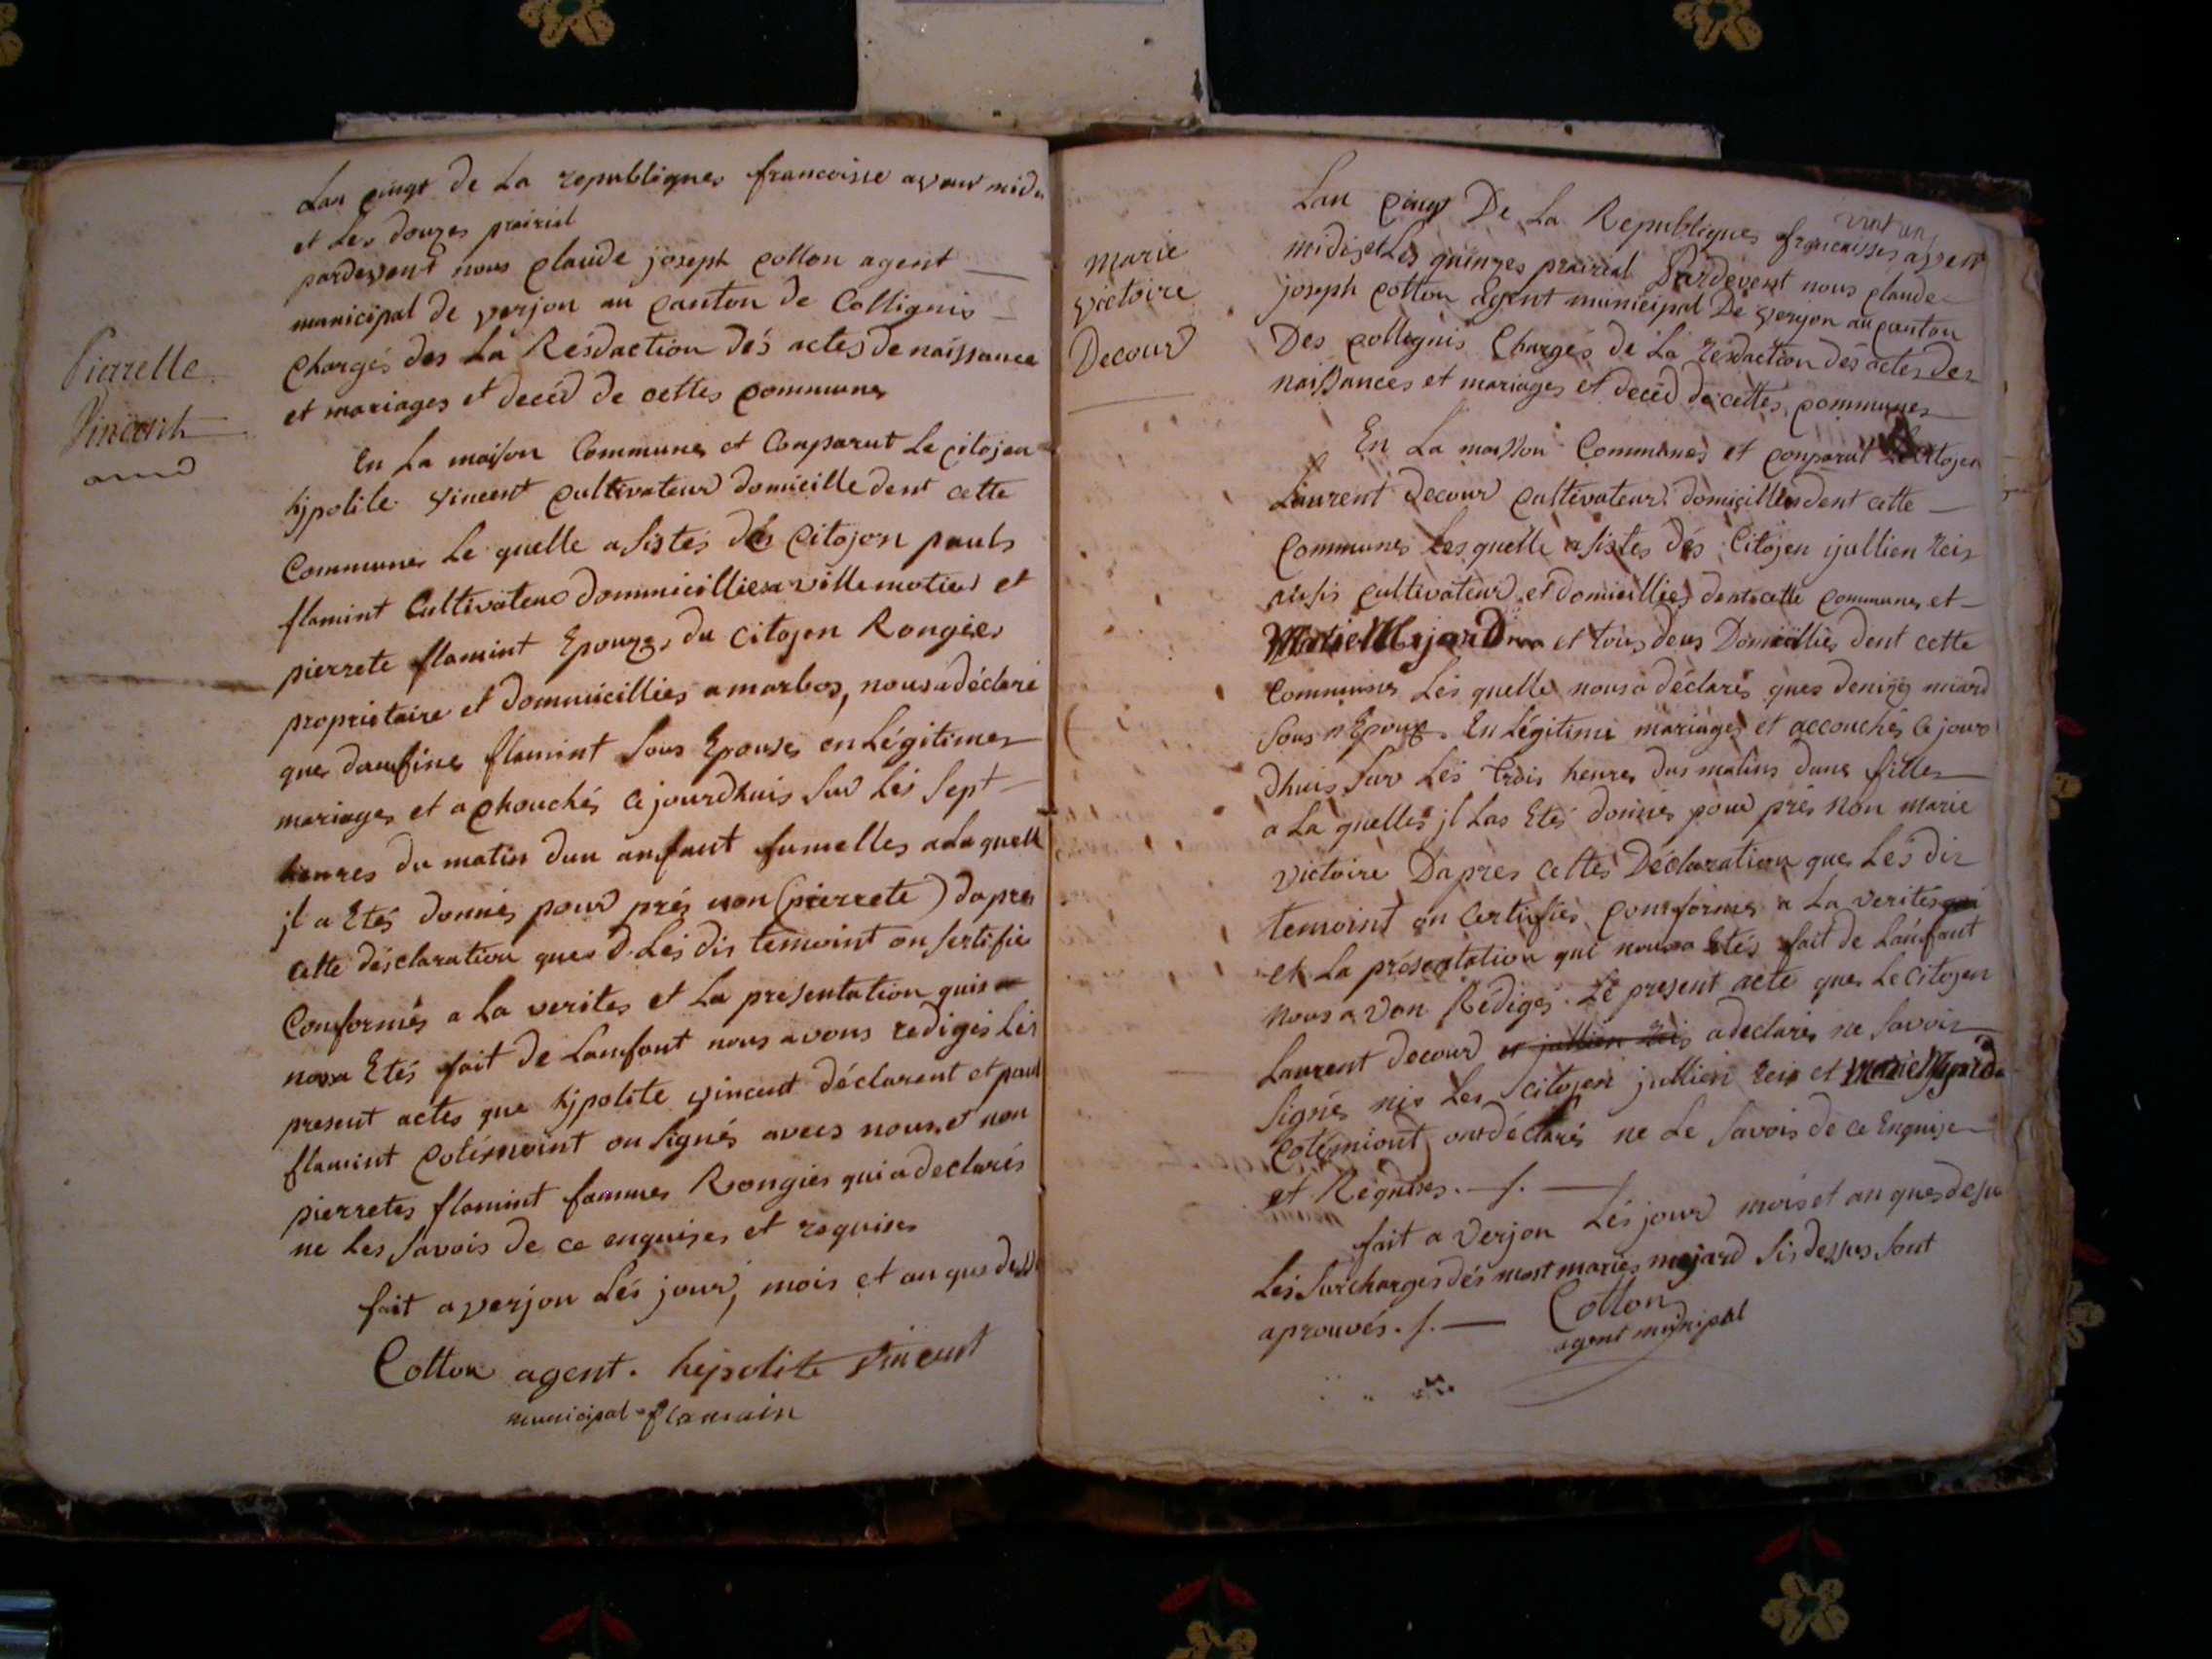 Pierrette
Vincent
Lan cinqt de La republiques francoisse avant midi
et Les douzes prairial
pardevent nous claude joseph cotton agent
municipal de verjon au canton de Collignis
Chargés des La Résdaction dés actes de naissance
et mariages et decéd de cettes communes
En La maison Communes et Conparut Le citojen
hjpolite vincent cultivateur domicille dent cette
Communes Le quelle asistés dés Citojon pauls
flamint Cultivateur dommicilliesa villemotier et
pierrete flamint Epouze du citojen Rongier
proprietaire et dommicilliés a marbos, nous a déclaré
ques daufines flamint sous Epouses en Légitimes
mariages et a chouchés ce jourdhuis sur Lés sept
heures du matin dun anfant fumelles a La quelle
jl a Etés donnés pour prés non (pierrete) dapres
cette désclaration ques d. Lés dis temoint on sertifies
Conformés a La verites et La presentation quis
nousa Etés fait de Lamfant nous avons redigés Lés
present actes que hjpolite vincent déclarent et paul
flamint cotémoint on signés avecs nous, et non
pierretes flamint fammes Rongiés qui a declarés
ne Les savois de ce enquises et requises
fait a verjon Lés jour, mois et an que dessu
Cotton agent. hipolite vincent
municipal flamain
marie
victoire
Decour
Lan cinqt De La Republiques francaisses avent
vint un
midis et Les quinzes prairial Pardevent nous claude
joseph cotton Agent municipal De verjon au canton
Des collignis Chargés de La résdaction dés actes des
naissances et mariages et decéd de cettes communes
En La maison Communes et conparut Le Citojen
Laurent decour cultivateur domicillies dent cette
Communes Les quelle asistes dés Citojen jullien Reis
ausis cultivateur et domicilliés dent cette communes et
Marie Mejard et tous deus Domicilliés dent cette
Communes Lés quelle nous a déclarés ques denises miard
sous Epouze En Légitime mariages et accouchés ce jour
dhuis sur Lés trois heures dus matins dune filles
a La quelles jl Las Etés donnés pour prés non marie
victoire Dapres cettes Déclaration ques Lés dis
temoint on Certifiés conformes a La verités
et La présentation qui nousa Etés fait de Lanfant
nous avon Rédigés Le present acte ques Le citojen
Laurent decour et jullien reis a declarés ne savois
signés nis Les citojen jullien reis et marie Mejard
Cotémiont ont déclarés ne Le savois de ce Enquise
et Réquises. /. —
fait a verjon Lés jour mois et an ques desu
Lés surcharges dés most mariés mejard sis dessus sont
aprouvés. /. — Cotton
agent municipal